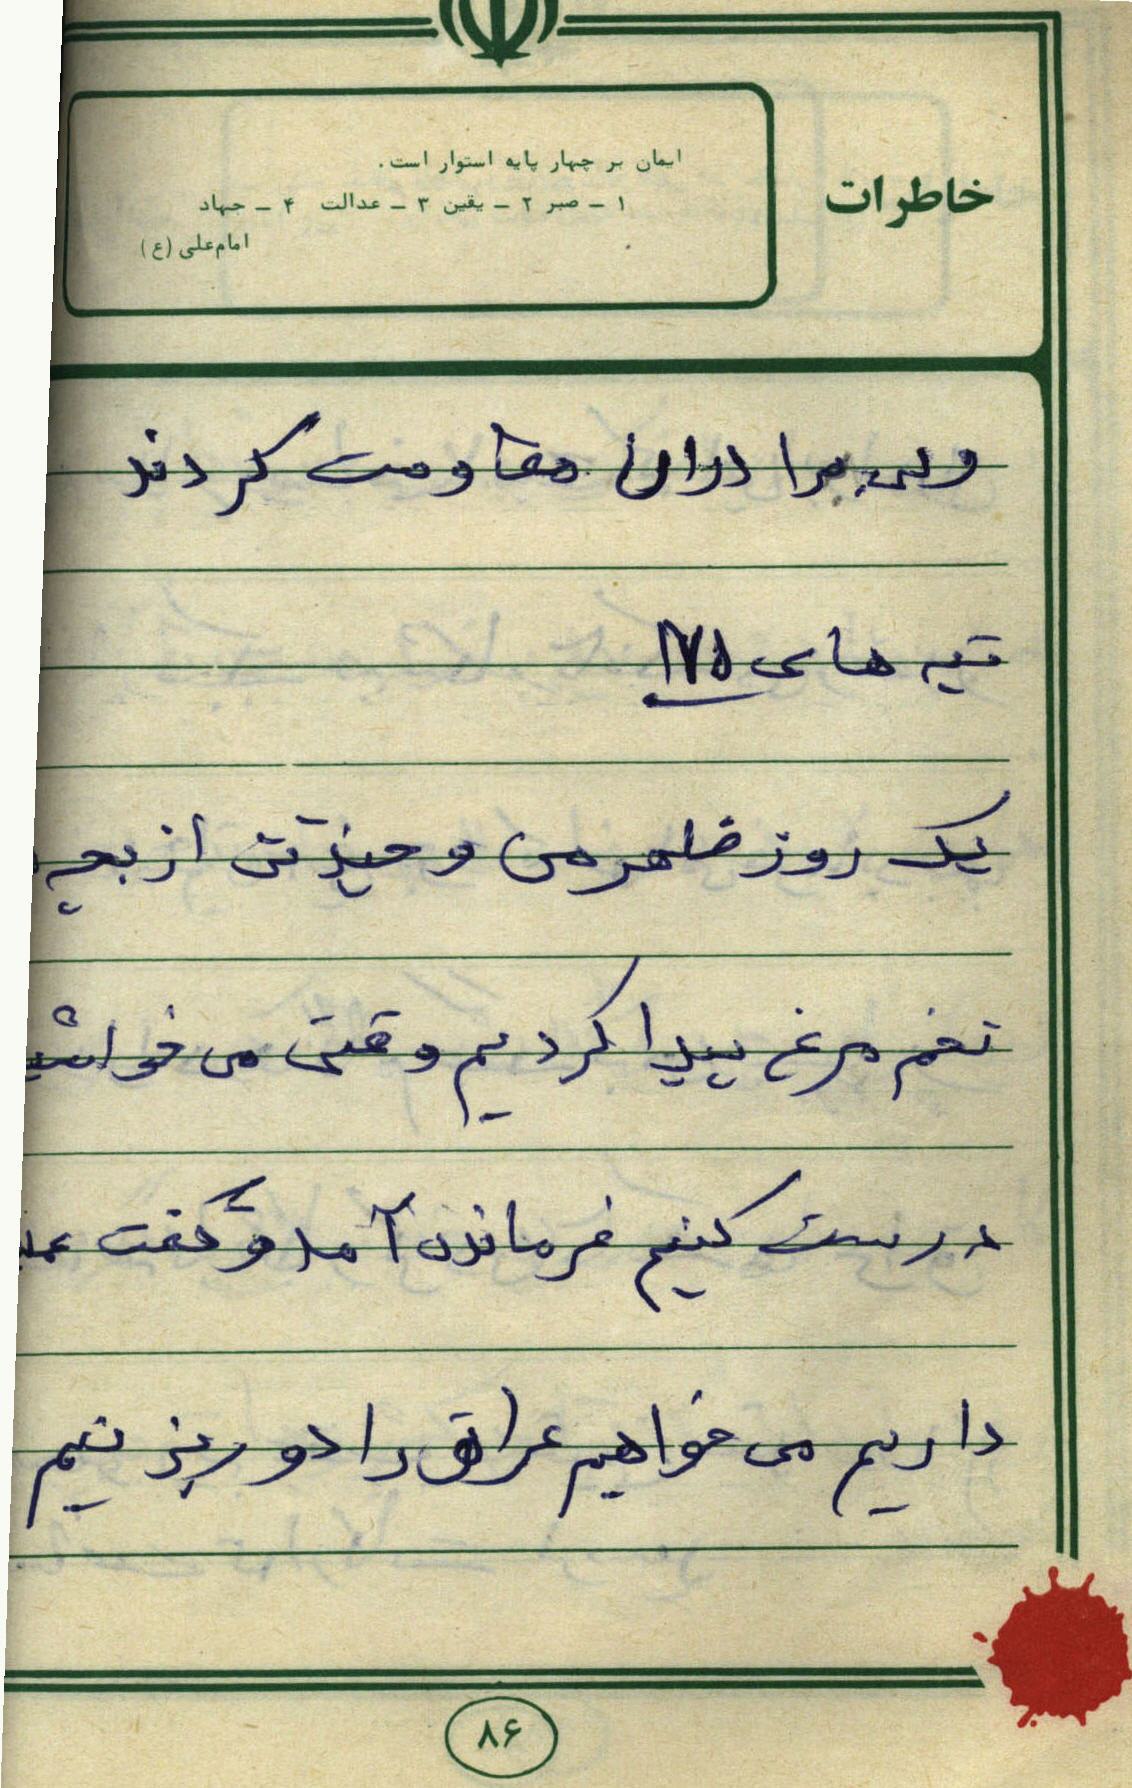 خاطرات
ایمان بر چهار پایه استوار است.
۱ - صبر ۲ - یقین ۳ - عدالت ۴ - جهاد
امام علی (ع)
ولی برادران مقاومت کردند
تپه های ۱۷۵
یک روز ظهر من و چند تن از بچه
تخم مرغ پیدا کردیم وقتی می خواشی
درست کنیم فرمانده آمد و گفت عمل
داریم می خواهیم عراق را دور بزنیم
۸۶